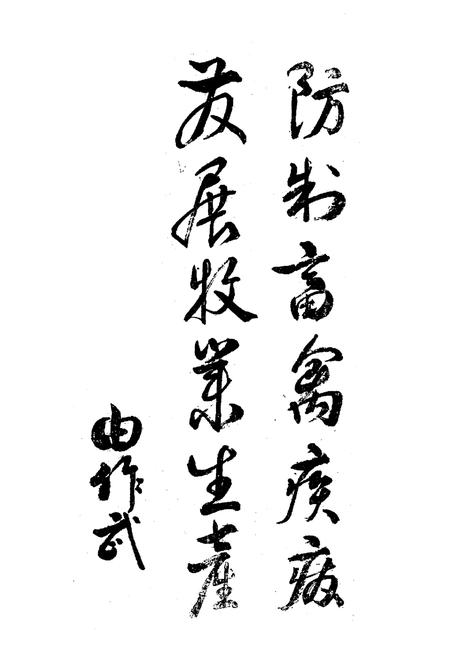 防制畜禽疾病
发展牧業生產
由作武